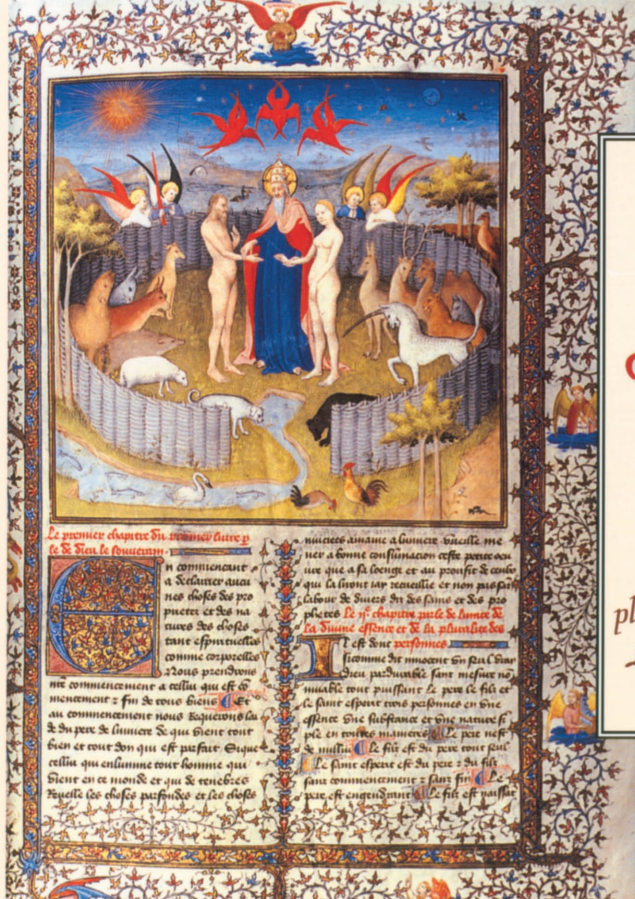 Le premier chapitre du premier livre p
le de dieu le souverain.
En commencent
a declairer aucu
nes choses des pro
prietez et des na
tures des choses
tant espirituelles
comme corporelles
Nous prendrons
nre commencement a cellui qui est co
mencement et fin de tous biens Et
au commencement nous Requerons lai
de du pere de lumiere de qui vient tout
bien et tout don qui est parfait Et que
cellui qui enlumine tout homme qui
vient en ce monde et qui de tenebres
Revelle les choses parfondes et les choses
muciees amaine a lumiere vueille me
ner a bonne consumacion ceste petite oeu
ure que a sa loenge et au prouffit de ceulx
qui la liront iay recueillie et non pas sans
labour de diuers dis des sains et des phi
Le ije chapitre parle de lunite de
La diuine essence et de la pluralite des
personnes
Il est dont
si comme dit innocent vn seul vray
dieu pardurable sans mesure no
muable tout puissant Le pere le filz et
le saint esperit trois personnes en vne
essence vne substance et vne nature si
ple en toutes manieres Le pere nest
de nullui Le filz est du pere tout seul
Le saint esperit est du pere et du filz
sans commencement et sans fin Le
pere est engendrant Le filz est naissāt
pl